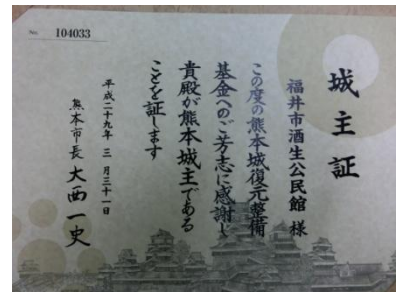 No. 104033
城主証
福井市酒生公民館 様
この度の熊本城復元整備
基金へのご芳志に感謝し
貴殿が熊本城主である
ことを証します
平成二十九年 三月三十一日
熊本市長 大西一史